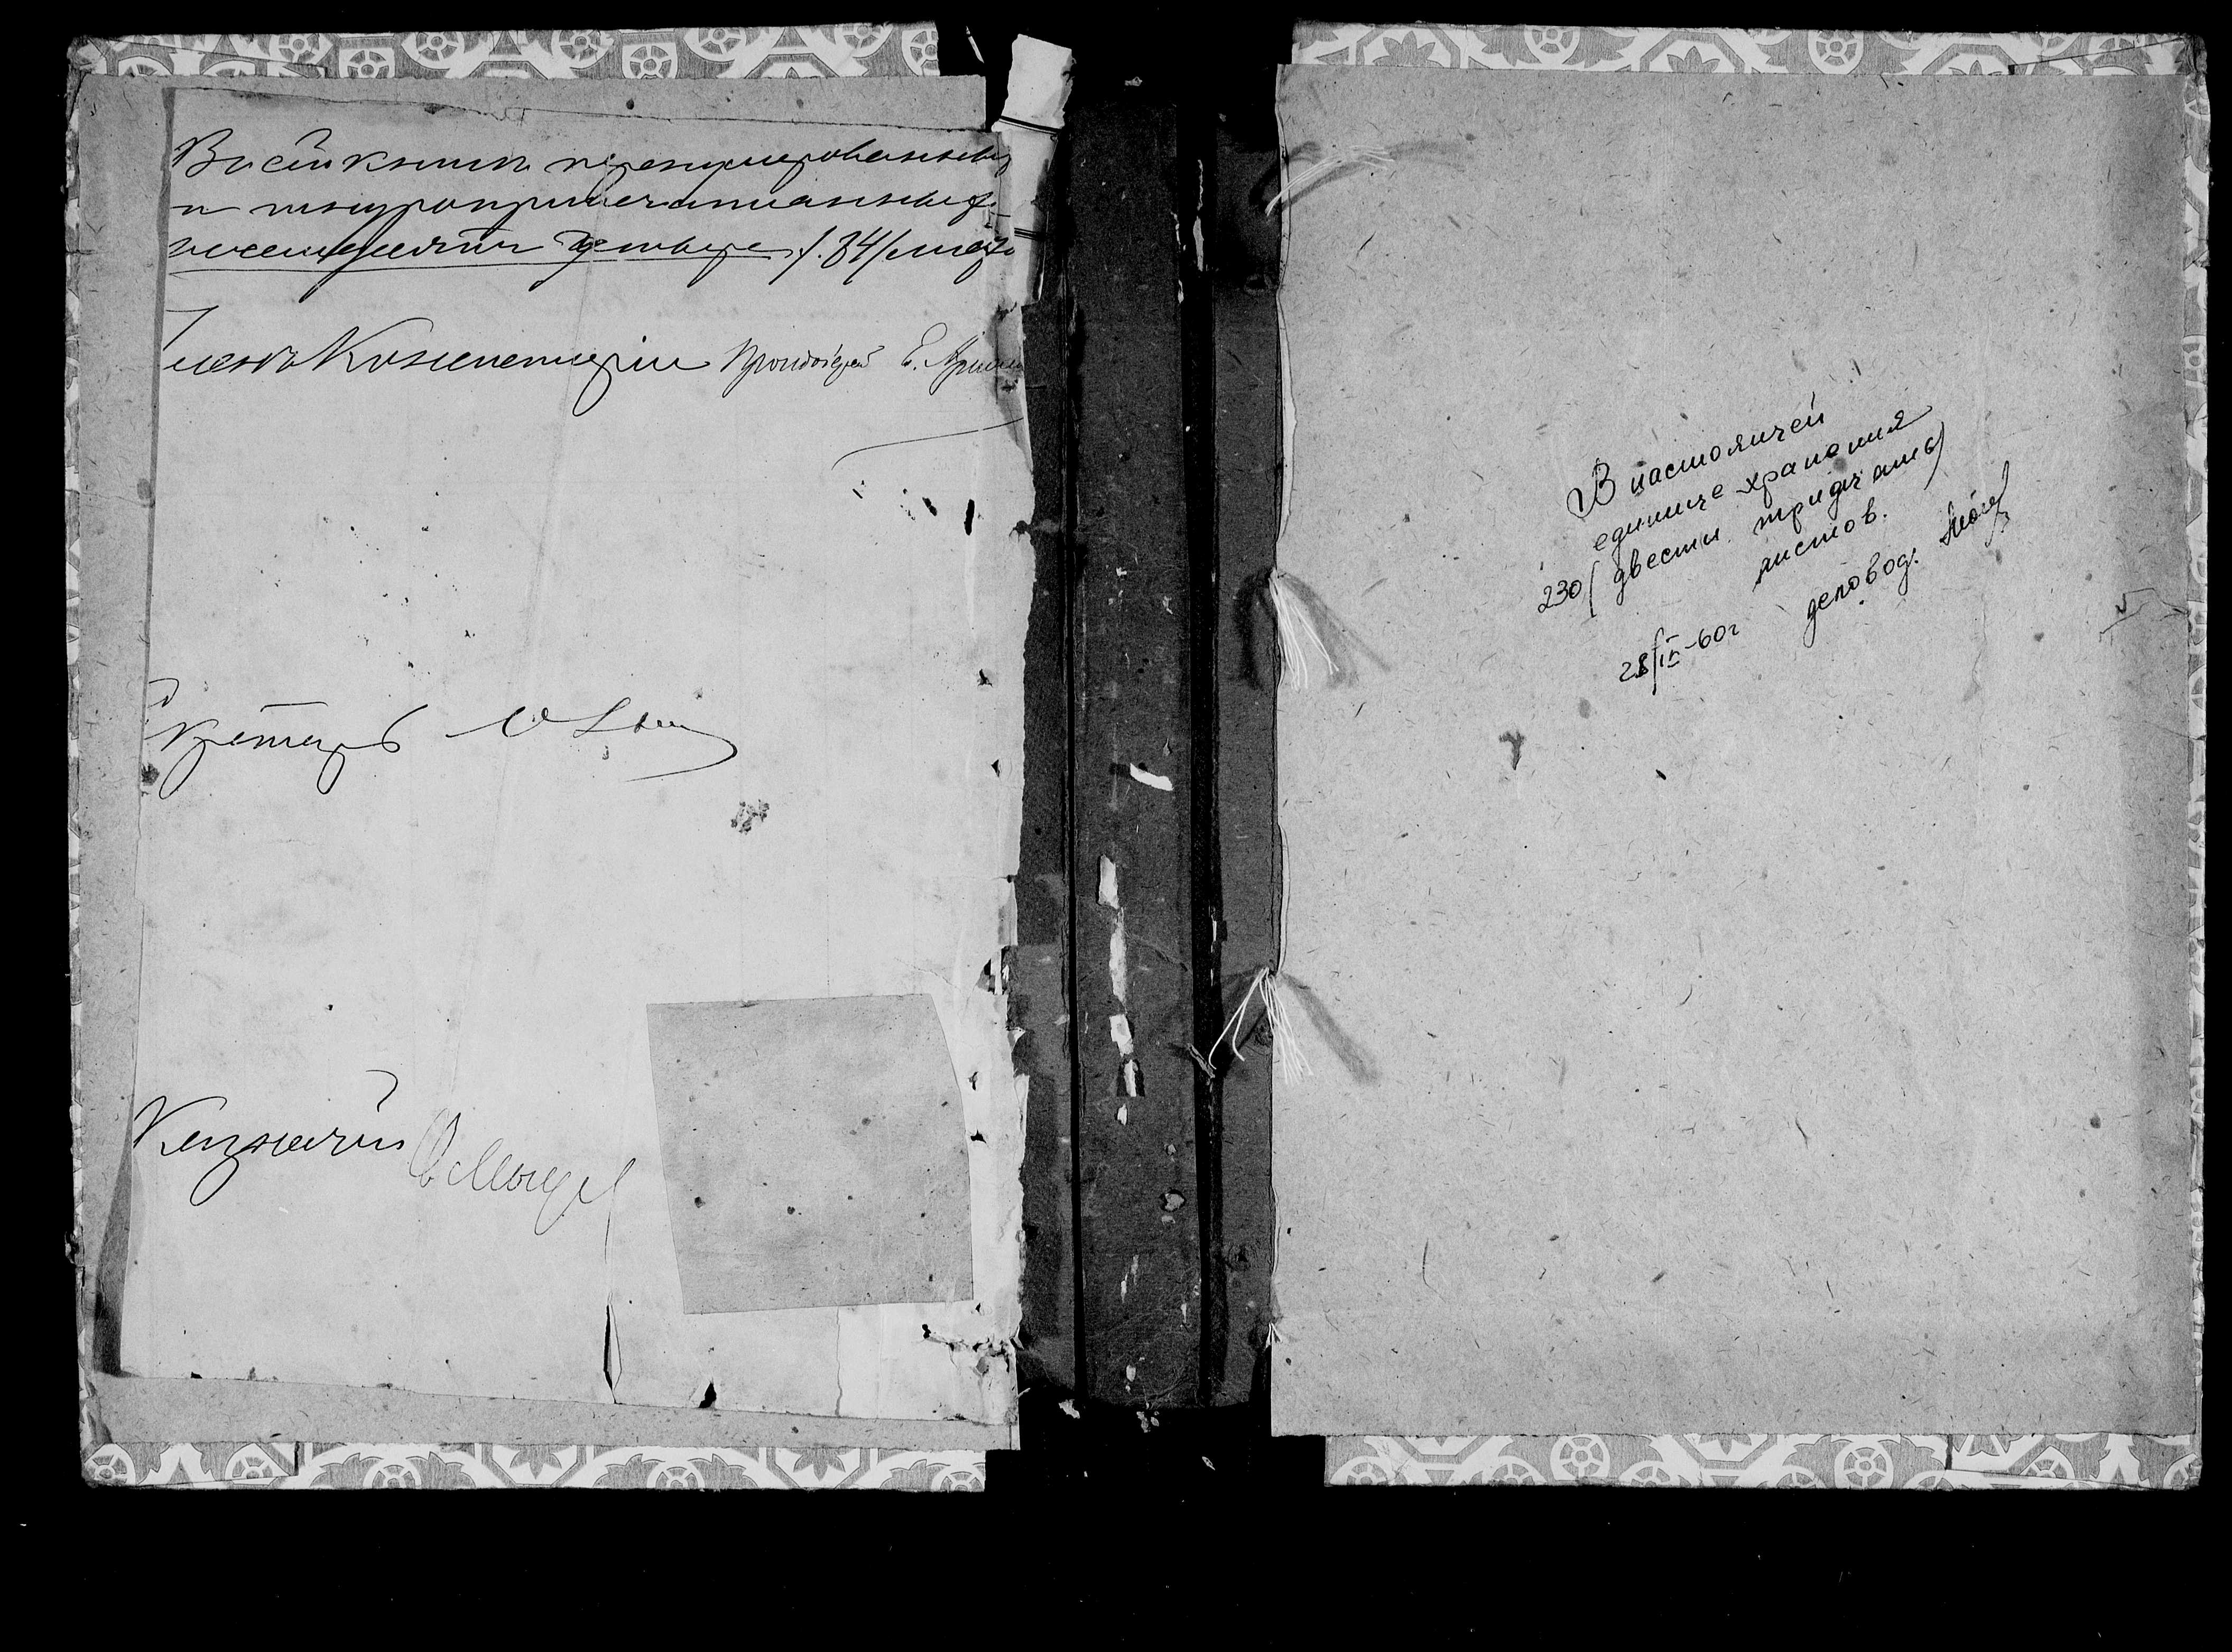 Въ сей книгѣ пронумерованныхъ
и шнуроприпечатанныхъ
восемьдесятъ четыре /.84/ листа
Членъ Консисторіи Протоіерей
Секретарь
Казначей
В настоящей
единице хранения
230 (двести тридцать)
листов.
28/IV-60г деловод.